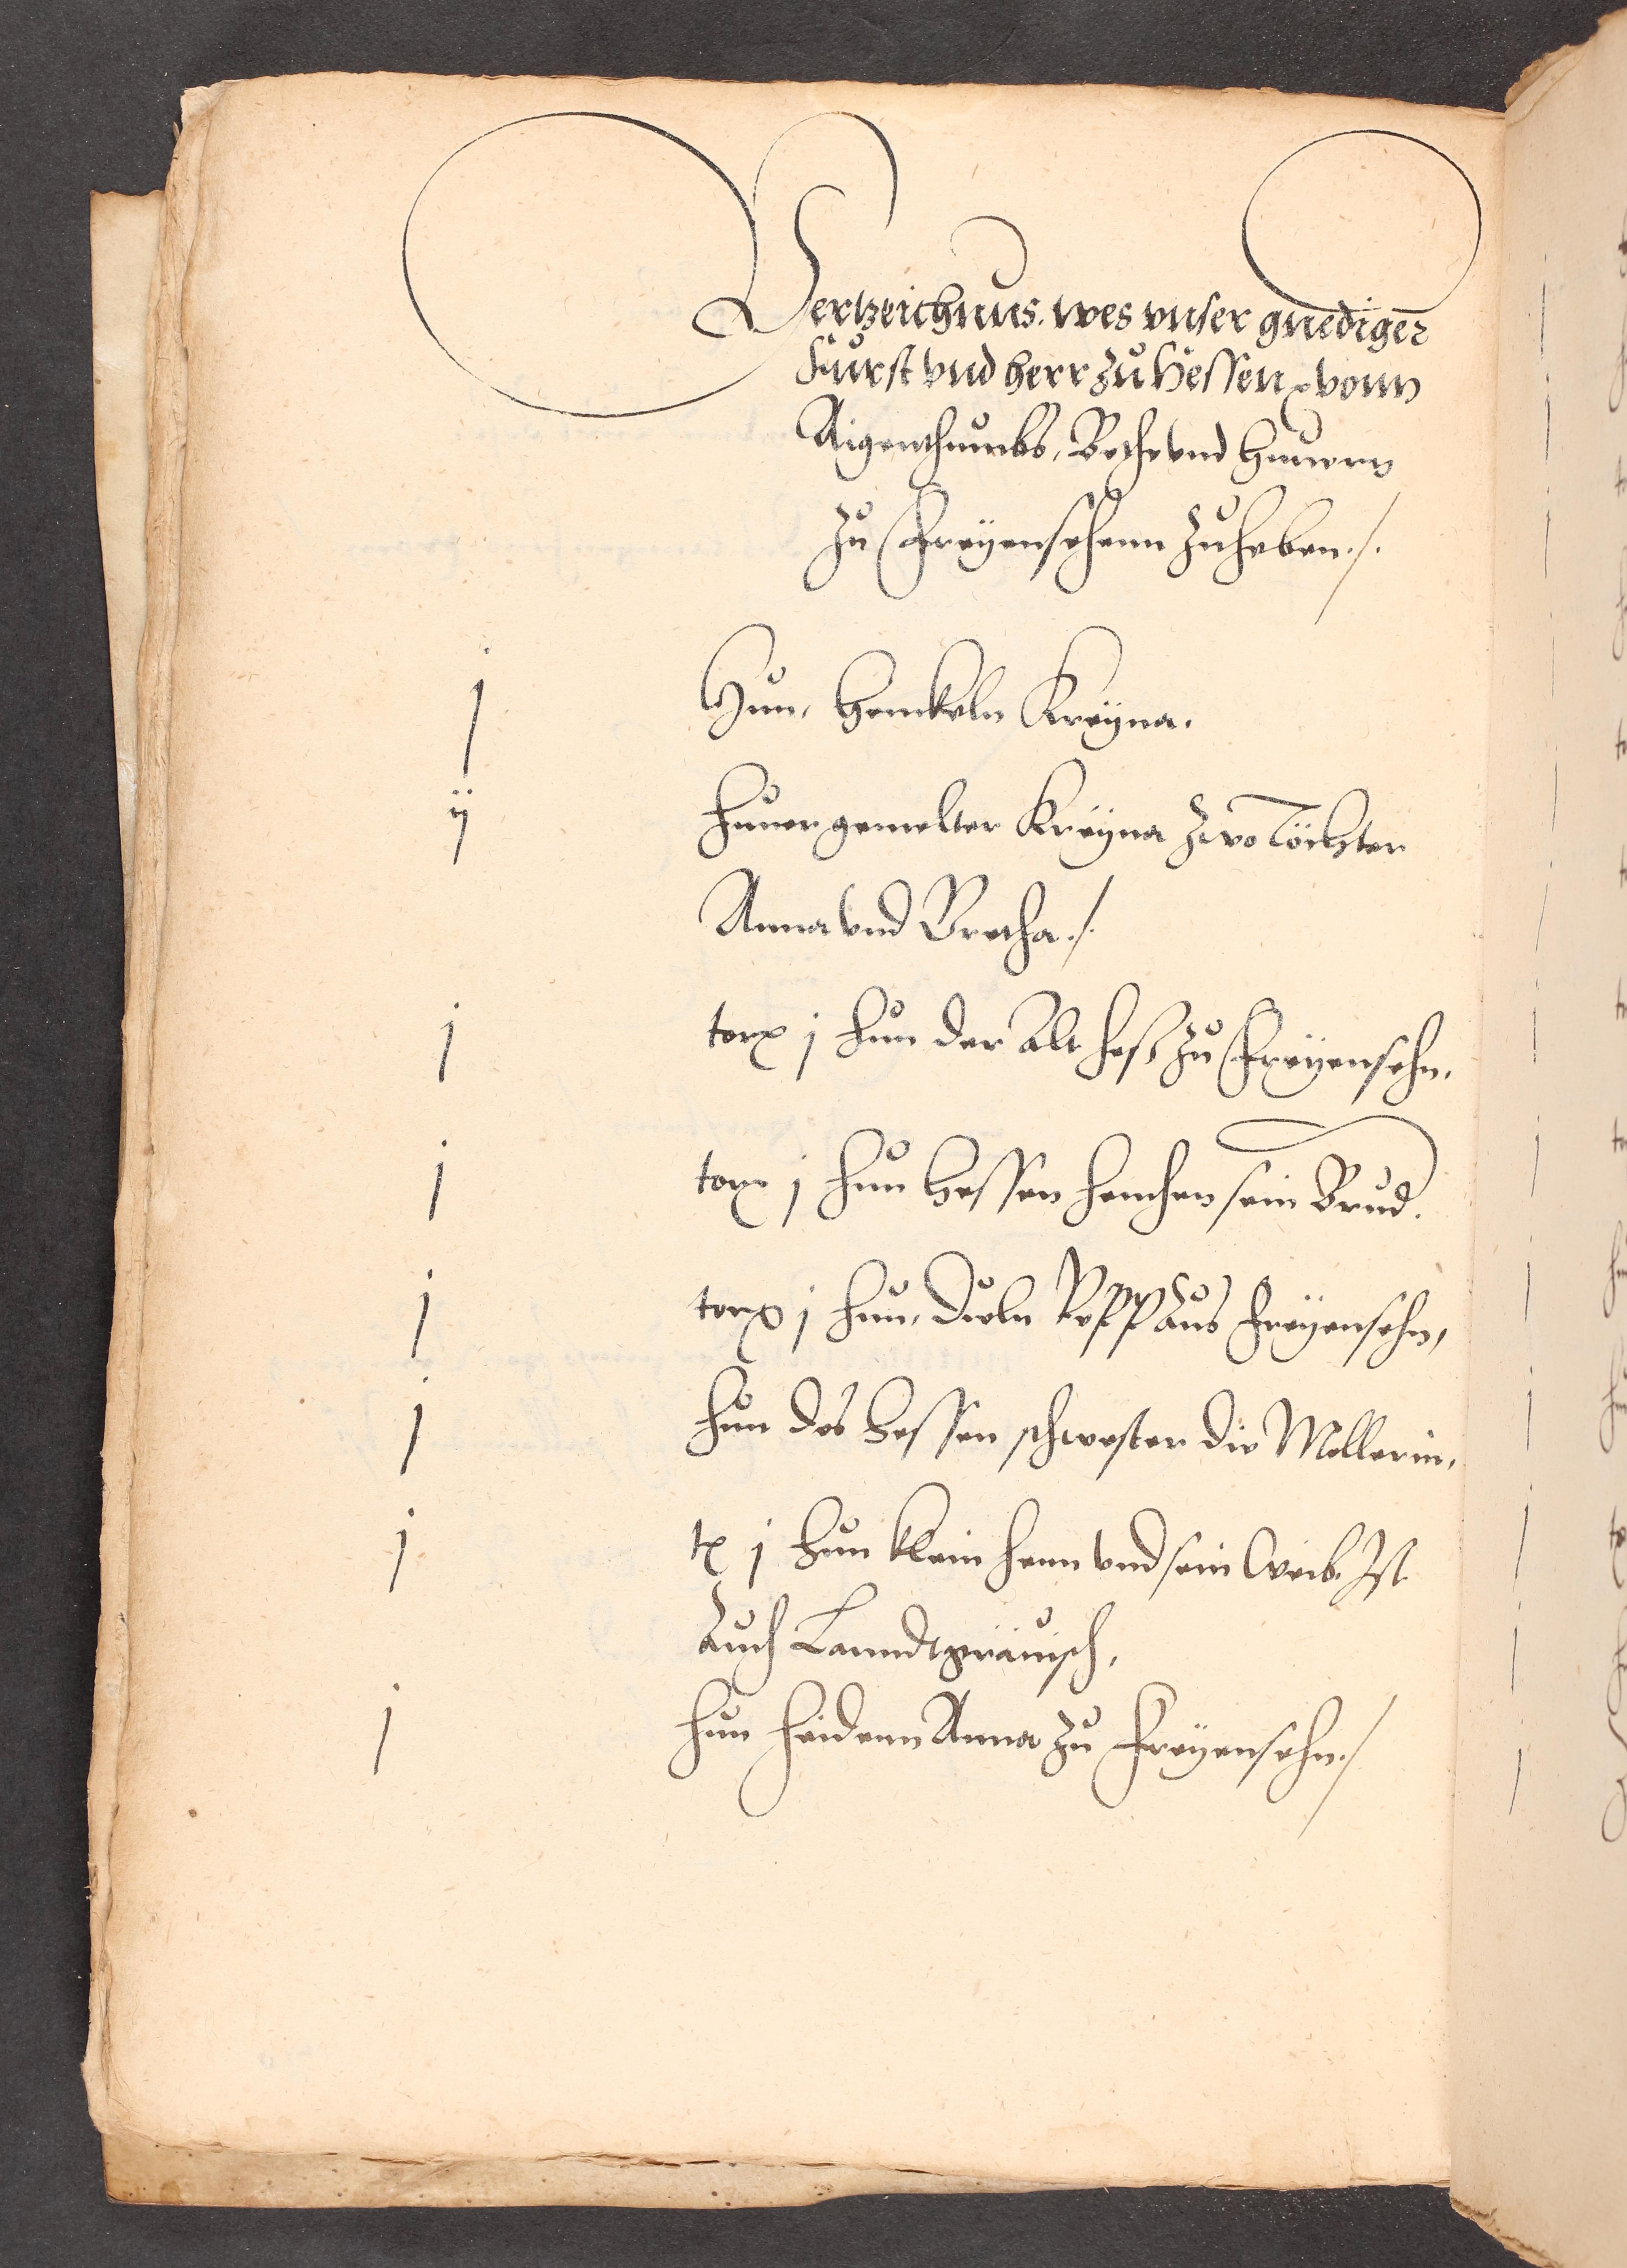 Vertzeichnus. wes vnser gnediger
Furst vnd herr zu Hessen vonn
Aigenthumbs, Bethe vnd Hunern
zu Freyensehenn zuheben ./.
j Hun, Henckeln Kreyna.
ij huner gemelter Kreyna zwo Töchter
Anna vnd Bretha ./.
j torx j hun der Alt heß zu Freyensehn.
j torx j hun Hessen henchen sein Brud.
j torx j hun, Ropp aus Freyensehn,
j hun des Hessen schwester die Mollerin,
j tx j hun klein henn vnd sein Weib. Ist
Auch Lanndtgräuisch,
j hun heidenn Anna zu Freyensehn ./